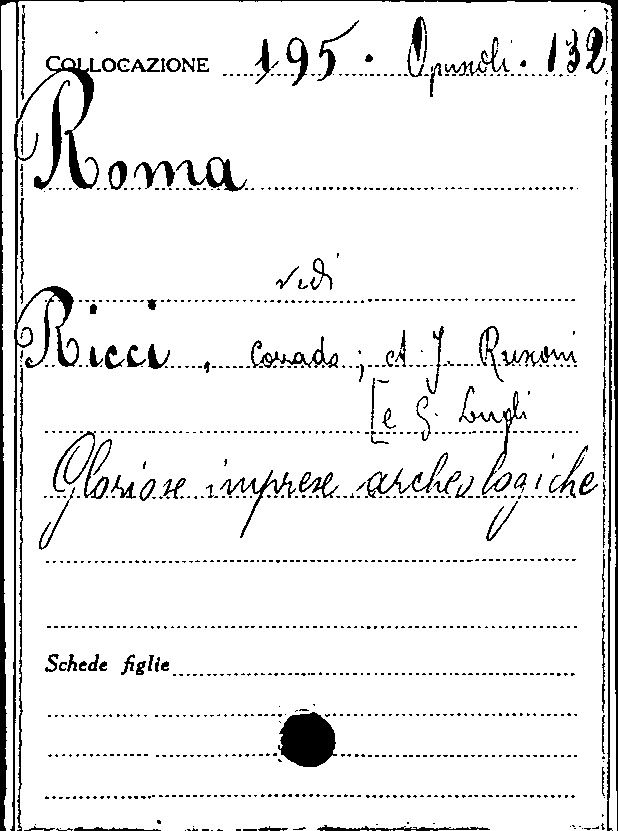 COLLOCAZIONE 195 · Opuscoli · 132
Roma
vedi
Ricci, Corrado; A. J. Rusconi
[e G. Lugli
Gloriose imprese archeologiche
Schede figlie